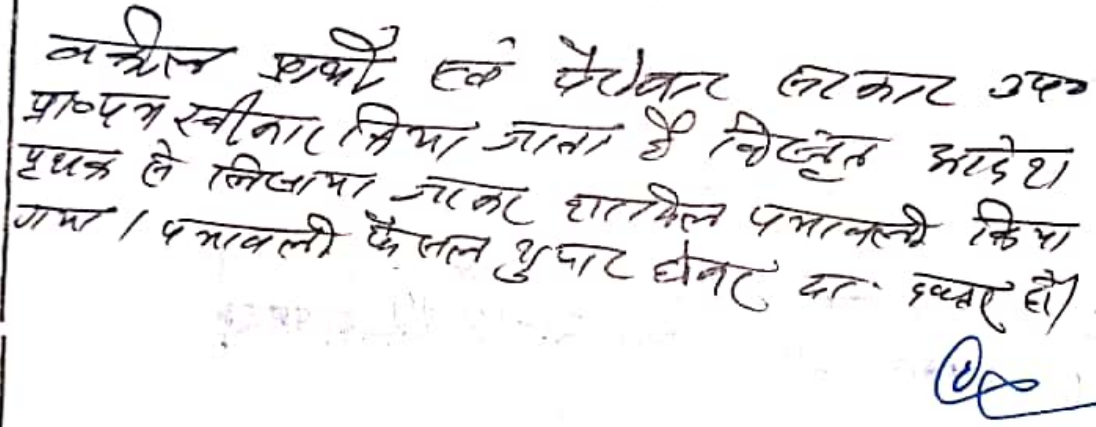 वकील प्रार्थी एवं पैरोकार सरकार उप०
प्रा०पत्र स्वीकार किया जाता है विस्तृत आदेश
पृथक से लिखाया जाकर शामिल पत्रावली किया
गया। पत्रावली फैसल शुमार होकर दा. दफ्तर हो।